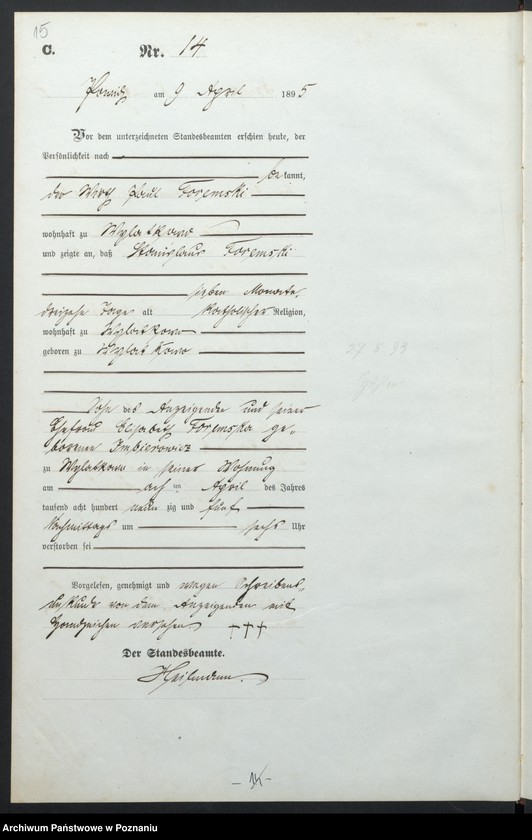 15
C.
Nr. 14
am 9 April 1895
Vor dem unterzeichneten Standesbeamten erschien heute, der
Persönlichkeit nach
bekannt,
der Wirth Paul Foremski
wohnhaft zu Wylatkowo
und zeigte an, daß Stanislaus Foremski
sieben Monate,
dreizehn Tage alt katholischer Religion,
wohnhaft zu Wylatkowo
geboren zu Wylatkowo
Sohn des Anzeigenden und seiner
Ehefrau Elisabeth Foremska ge-
borene Imbierowicz
zu Wylatkowo in seiner Wohnung
am acht ten April des Jahres
tausend acht hundert neun zig und fünf
Nachmittags um sechs Uhr
verstorben sei
Vorgelesen, genehmigt und wegen Schreibens-
unkunde von dem Anzeigenden mit
Handzeichen versehen +++
Der Standesbeamte.
- 14 -
Archiwum Państwowe w Poznaniu